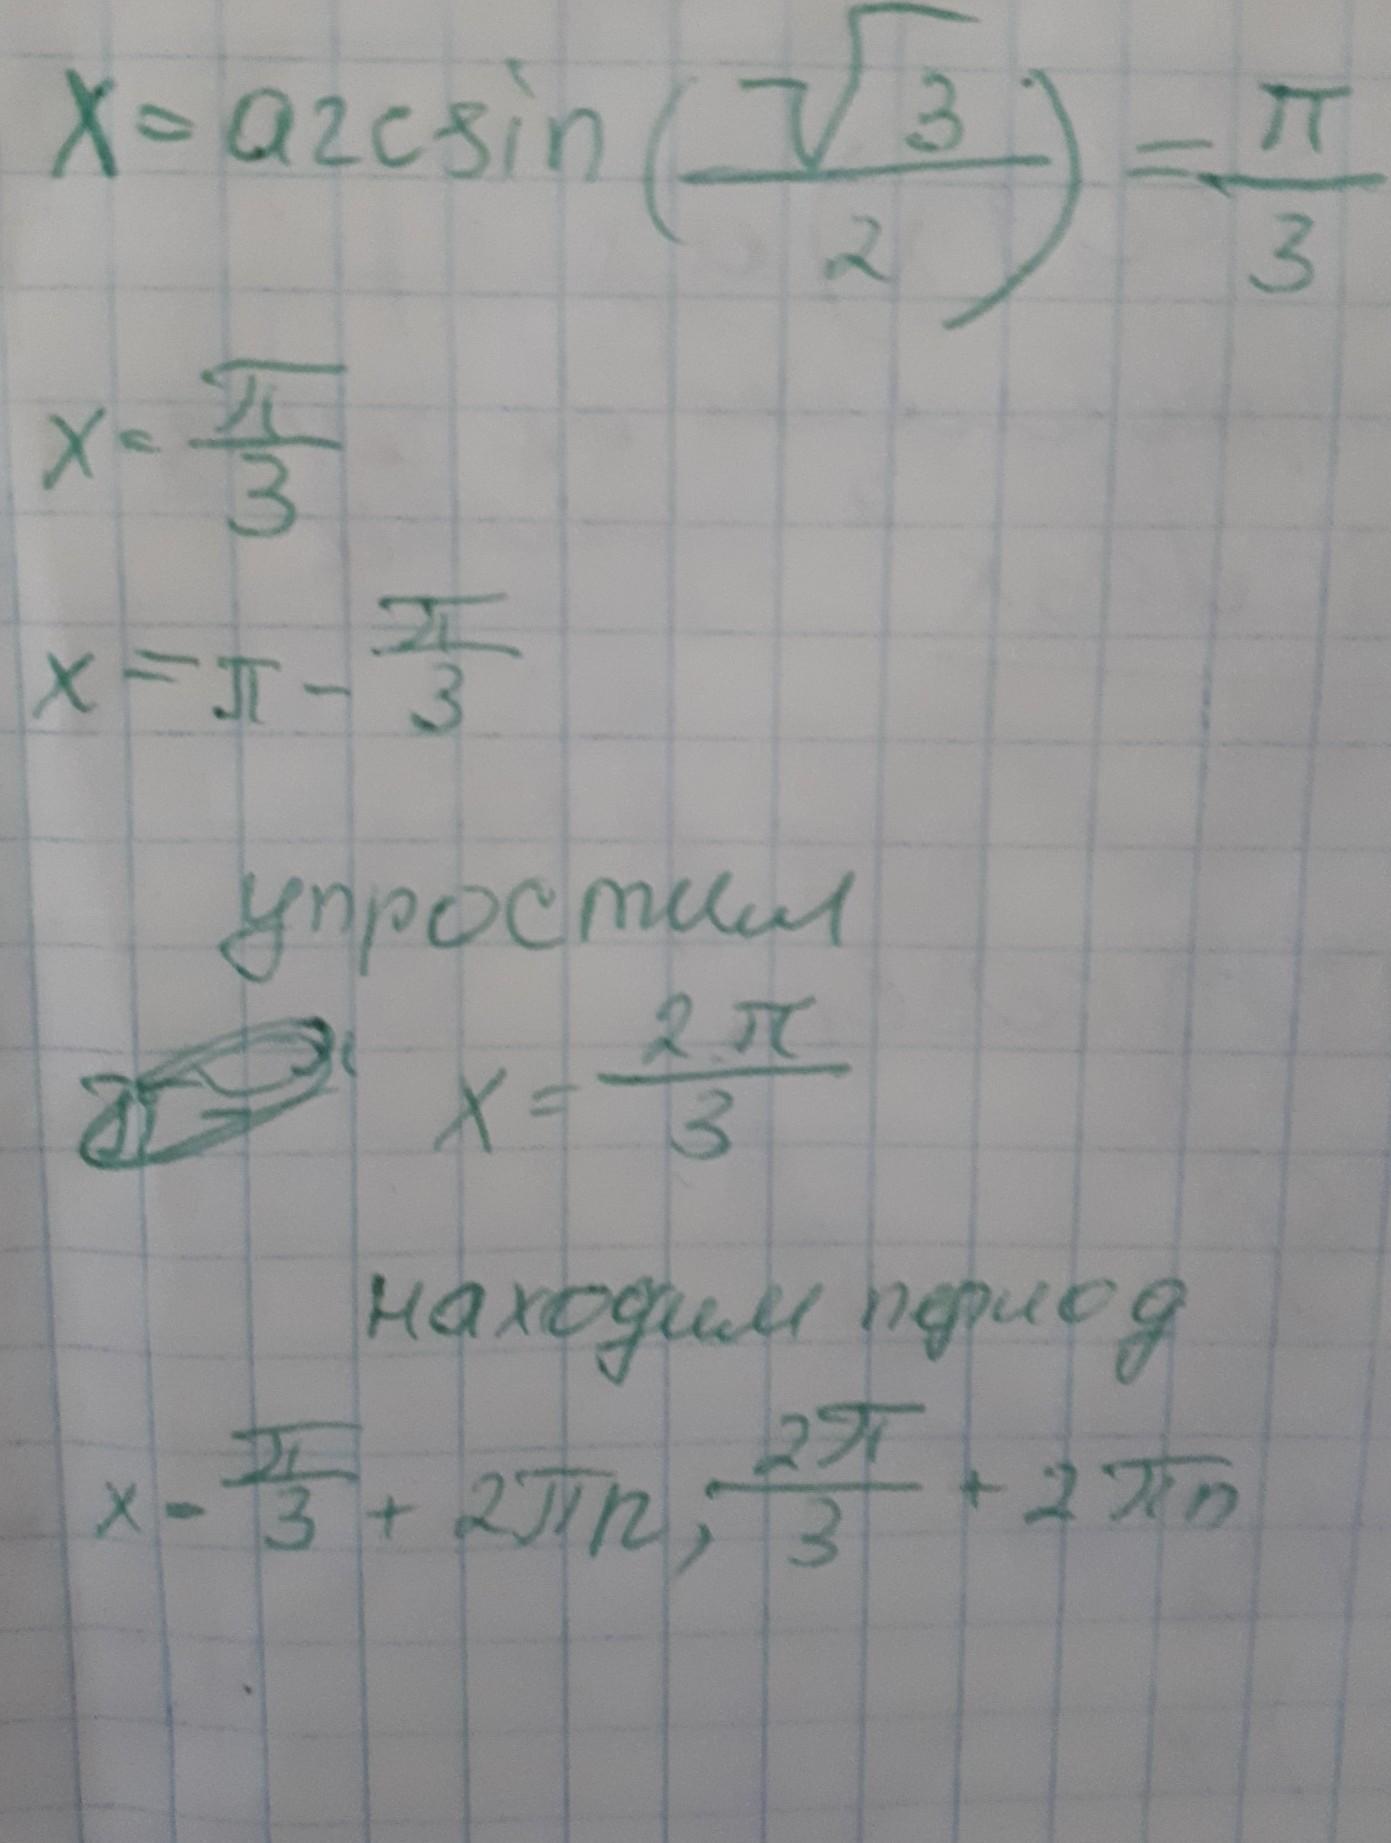 x = arcsin(√3/2) = π/3
x = π/3
x = π - π/3
упростим
x = 2π/3
находим период
x = π/3 + 2πn, 2π/3 + 2πn